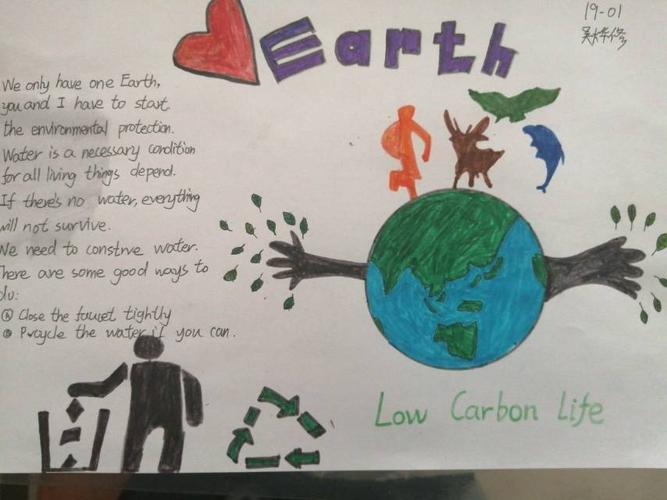 Earth
19-01
We only have one Earth,
you and I have to start
the environmental protection.
Water is a necessary condition
for all living things depend.
If there's no water, everything
will not survive.
We need to constrve water.
There are some good ways to
do:
Ⓐ Close the faucet tightly
Rycycle the water if you can.
Low Carbon Life